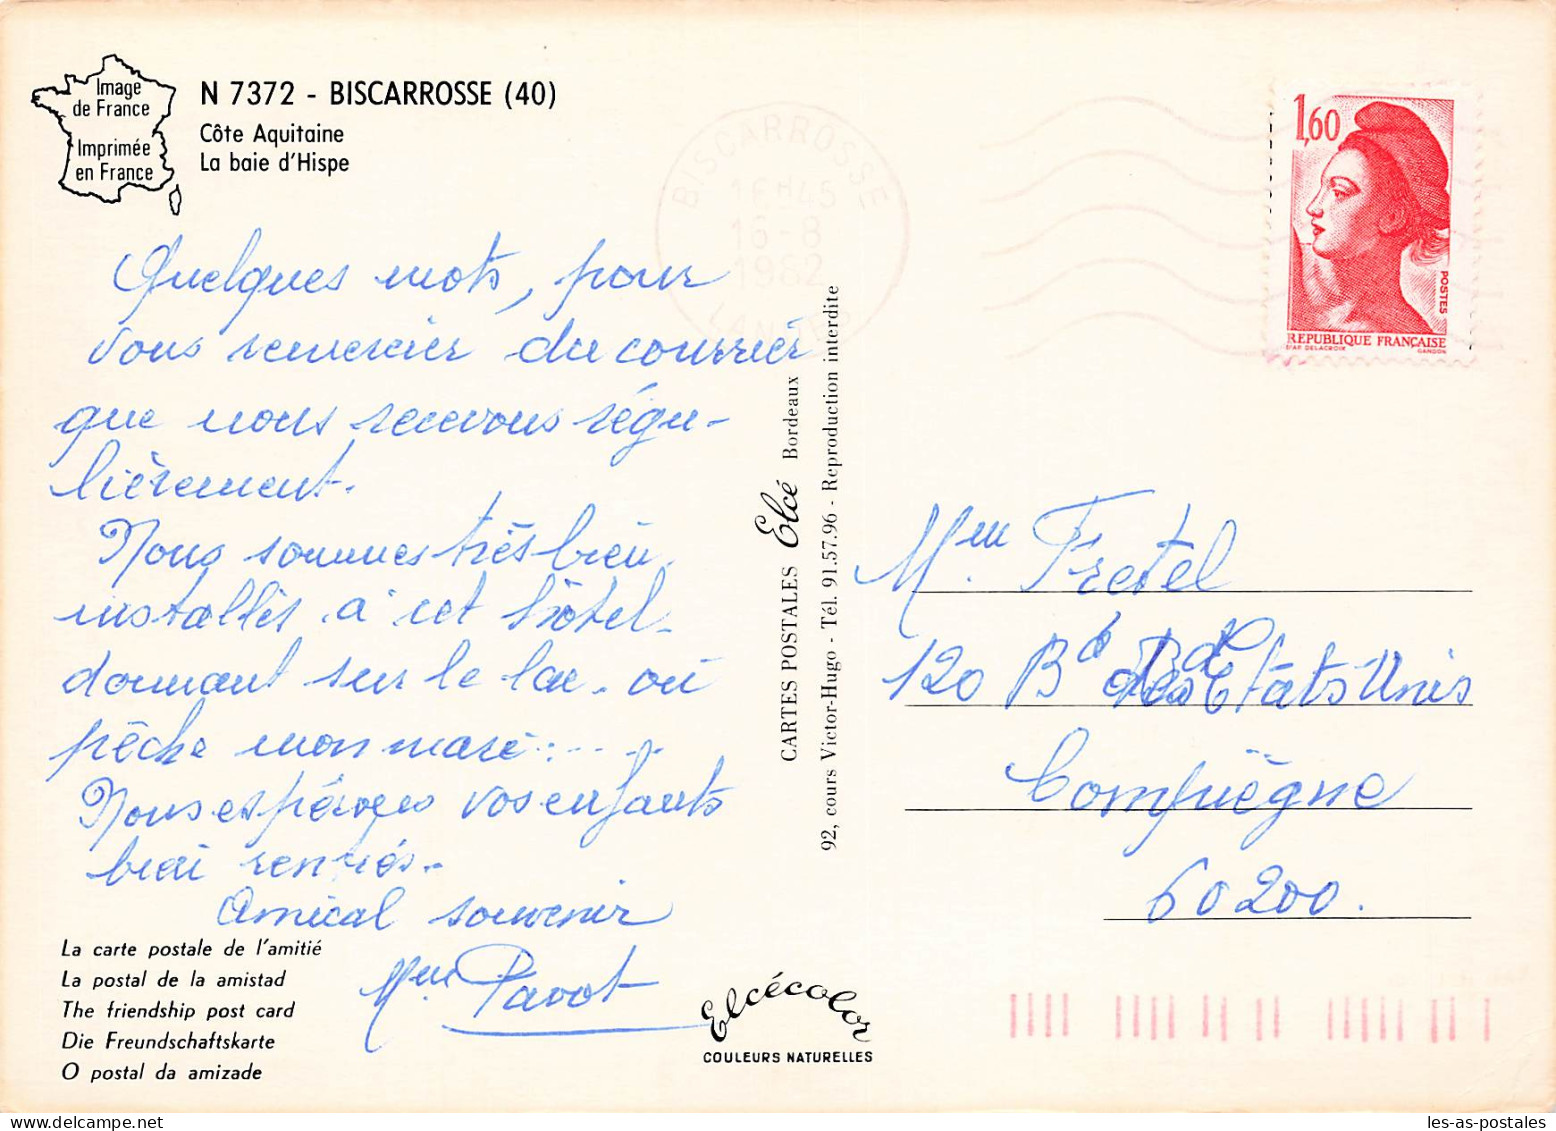 Image
de France
Imprimée
en France
N 7372 - BISCARROSSE (40)
Côte Aquitaine
La baie d'Hispe
BISCARROSSE
16H45
16-8
1982
LANDES
1,60
POSTES
REPUBLIQUE FRANÇAISE
D'AP DELACROIX GANDON
Quelques mots, pour
vous remercier du courrier
que nous recevons régu-
lièrement.
Nous sommes très bien
installés à cet hôtel
donnant sur le lac. où
pêche mon mari:....
Nous espérons vos enfants
bien rentrés.
Amical souvenir
Mme Pavot
La carte postale de l'amitié
La postal de la amistad
The friendship post card
Die Freundschaftskarte
O postal da amizade
CARTES POSTALES Elcé Bordeaux
92, cours Victor-Hugo - Tél. 91.57.96 - Reproduction interdite
Elcécolor
COULEURS NATURELLES
Mme Fretel
120 Bd des Etats Unis
Compiègne
60200.
les-as-postales